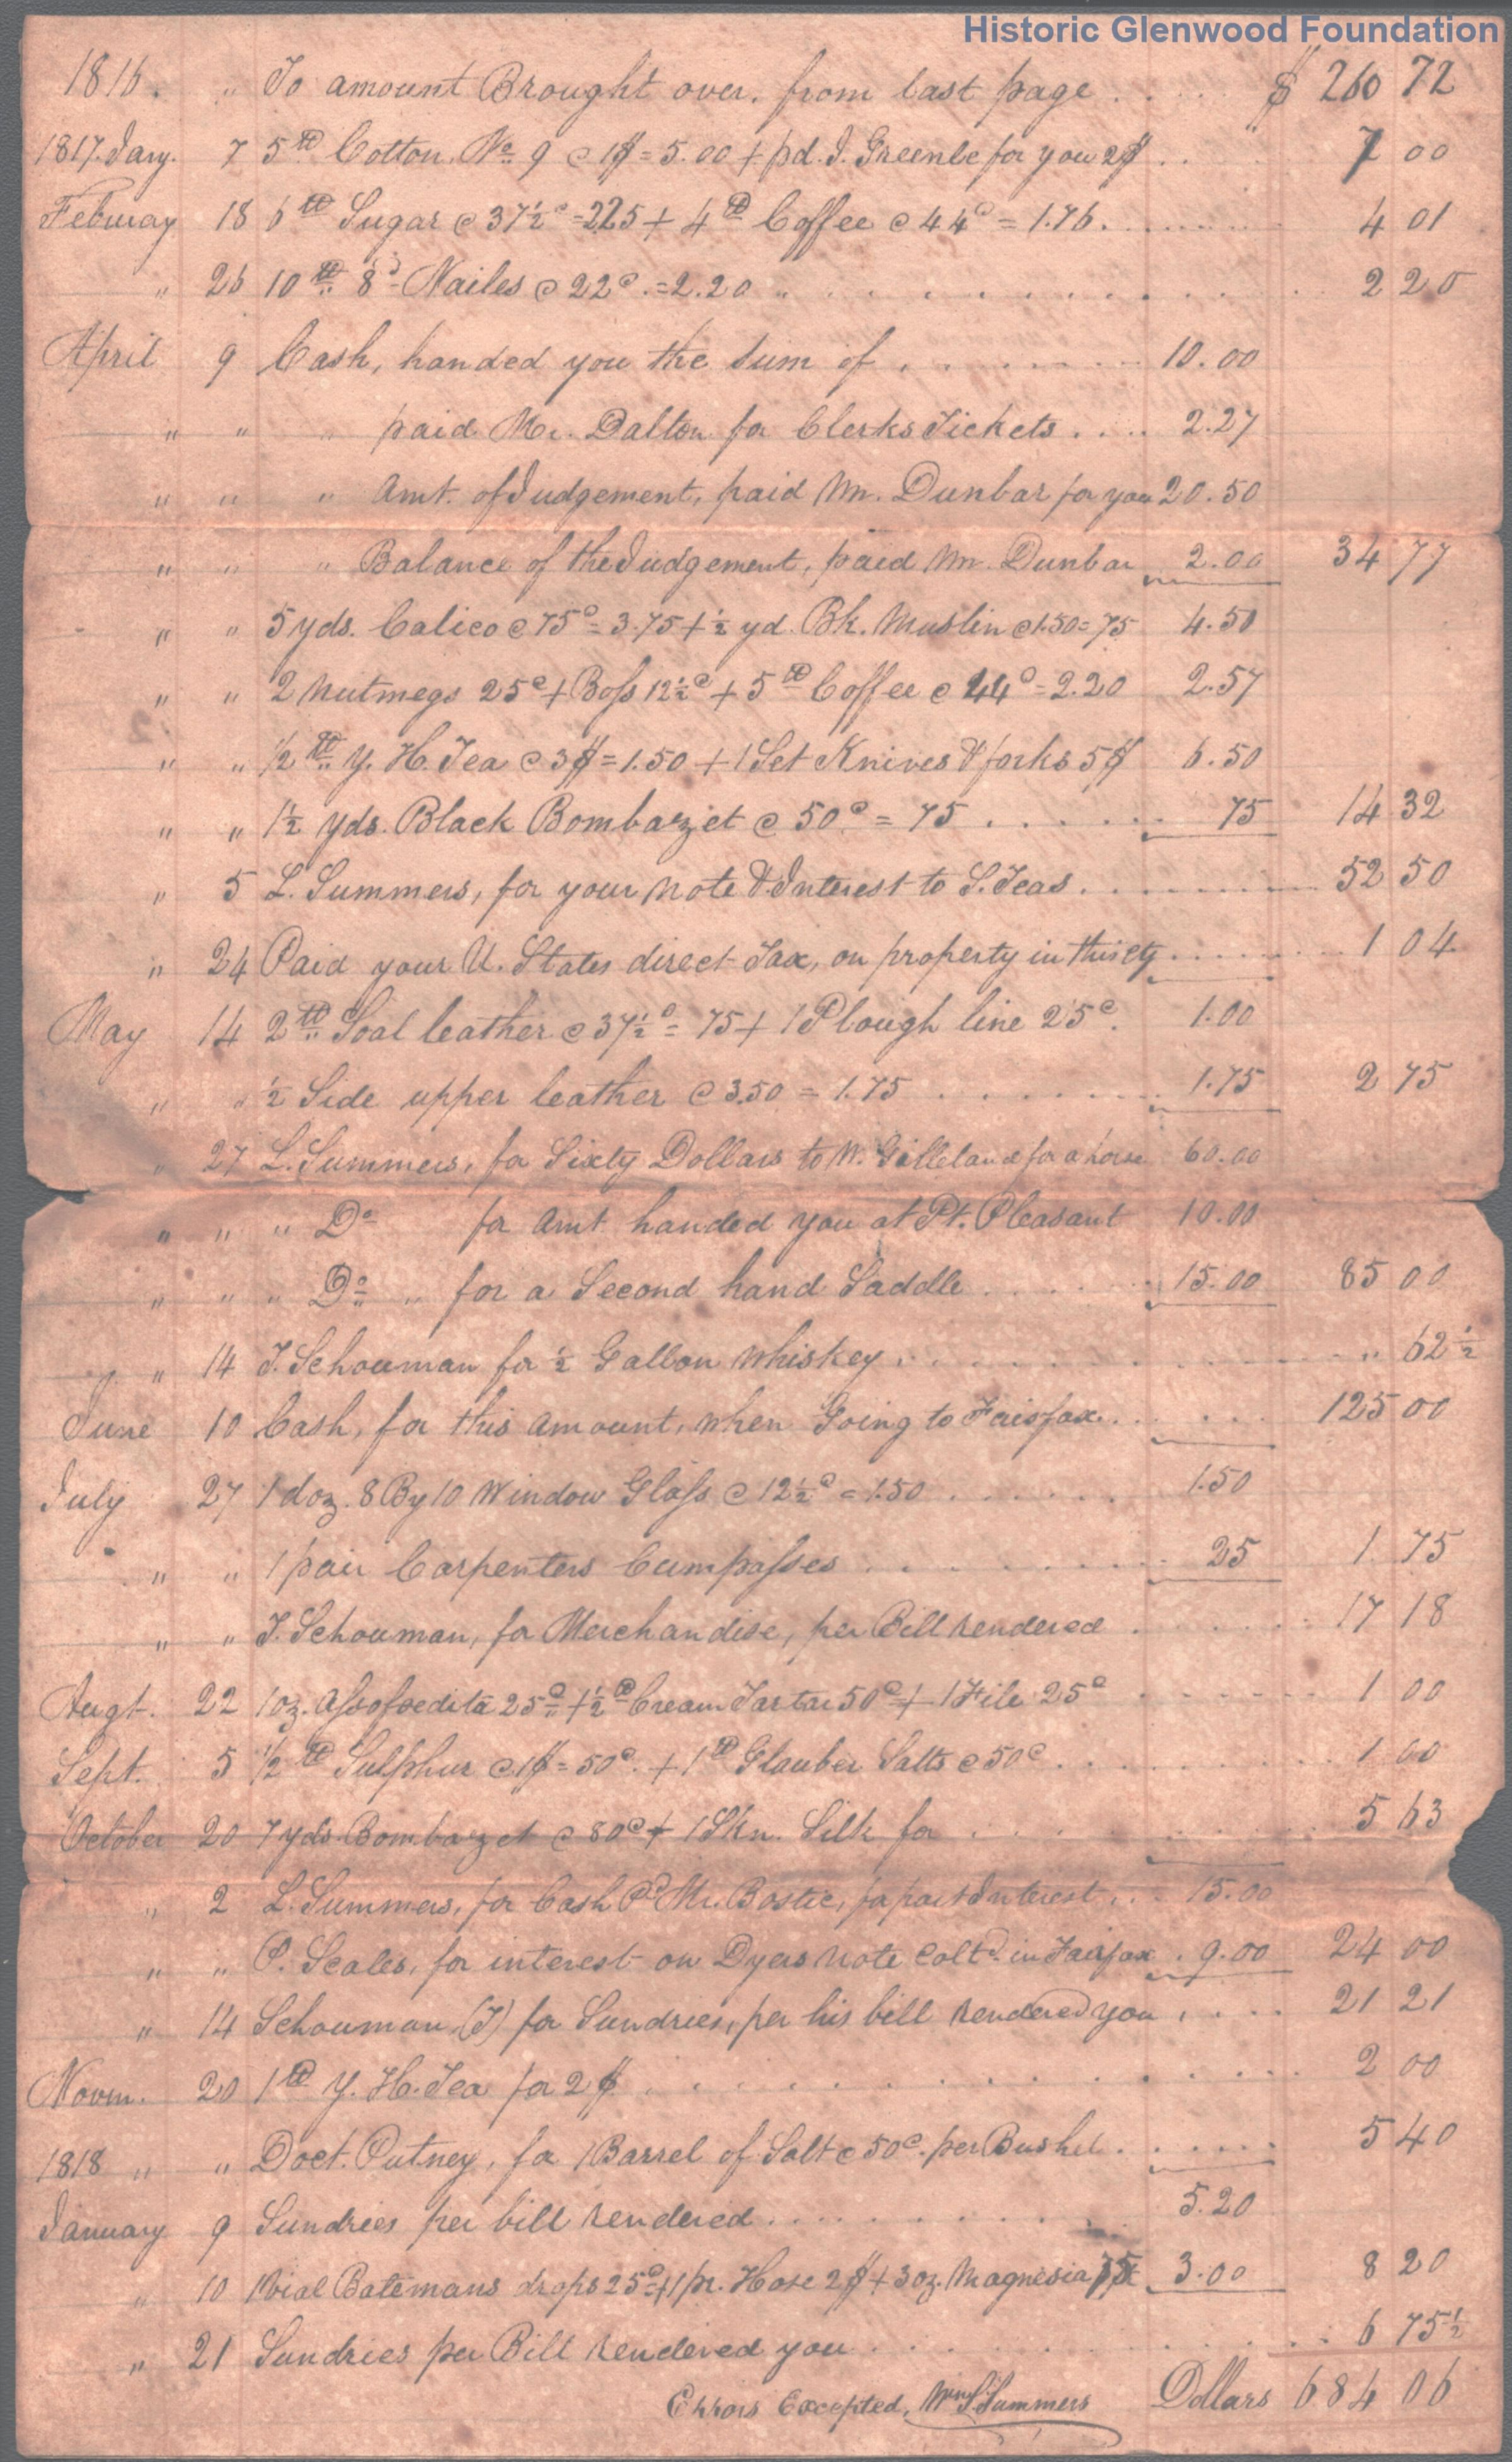 Historic Glenwood Foundation
1816. " To amount Brought over, from last page . . . . $ 260 72
1817. Jany. 7 5 lb Cotton, No 9 @ 1$ = 5.00 + pd. J. Greenle for you 2$ . . 7 00
Feburay 18 6 lb Sugar @ 37½c = 225 + 4 lb Coffee @ 44c = 1.76. . . . . . 4 01
" 26 10 lb 8d Nailes @ 22c. = 2.20 " . . . . . . . 2 20
April 9 Cash, handed you the sum of . . . . . . 10.00
" " " paid Mr. Dalton for Clerks Tickets . . . . 2.27
" " " Amt. of Judgement, paid Mr. Dunbar for you 20.50
" " " Balance of the Judgement, paid Mr. Dunbar 2.00 34 77
" " 5 yds. Calico @ 75c = 3.75 + ½ yd. Bk. Muslin @ 1.50 = 75 4.50
" " 2 Nutmegs 25c + Boſs 12½c + 5 lb Coffee @ 44c = 2.20 2.57
" " 1/2 lb Y. H. Tea @ 3$ = 1.50 + 1 Set Knives & forks 5$ 6.50
" " 1½ yds. Black Bombazet @ 50c = 75 . . . . . . 75 14 32
" 5 L. Summers, for your note & Interest to S. Teas . . . . . . 52 50
" 24 Paid your U. States direct Tax, on property in this cty . . . . . . 1 04
May 14 2 lb Soal leather @ 37½c = 75 + 1 Plough line 25c. 1.00
" " ½ Side upper leather @ 3.50 = 1.75 . . . . . . 1.75 2 75
" 27 L. Summers, for Sixty Dollars to W. Gilleland for a horse 60.00
" " " Do for Amt. handed you at Pt. Pleasant 10.00
" " " Do " for a Second hand Saddle . . . . . 15.00 85 00
" 14 J. Schouman for ½ Gallon Whiskey . . . . . . " 62½
June 10 Cash, for this amount, when Going to Fairfax . . . . . 125 00
July 27 1 doz. 8 By 10 Window Glaſs @ 12½c = 1.50 . . . . . . 1.50
" " 1 pair Carpenters Cumpaſses . . . . . . . 25 1 75
" " J. Schouman, for Merchandise, per Bill rendered . . . . . 17 18
Augt. 22 1 oz. Aſsofoedita 25c + ½ lb Cream Tartar 50c + 1 File 25c . . . . . 1 00
Sept. 5 1/2 lb Sulphur @ 1$ = 50c. + 1 lb Glauber Salts @ 50c . . . . . . 1 00
October 20 7 yds. Bombazet @ 80c + 1 Skn. Silk for . . . . . . 5 63
" 2 L. Summers, for Cash Pd Mr. Bostic, for part Interest . . . 15.00
" " P. Scales, for interest on Dyers note Coltd. in Fairfax . 9.00 24 00
" 14 Schouman (J) for Sundries, per his bill rendered you . . . . 21 21
Novm. 20 1 lb Y. H. Tea for 2$ . . . . . . . . 2 00
1818 " " Doct. Putney, for 1 Barrel of Salt @ 50c. per Bushel . . . . . . 5 40
January 9 Sundries per bill rendered . . . . . . . 5.20
" 10 1 Vial Batemans drops 25c + 1 pr. Hose 2$ + 3 oz. Magnesia 75c 3.00 8 20
" 21 Sundries per Bill rendered you . . . . . . . 6 75½
Errors Excepted, Wm S. Summers Dollars 684 06